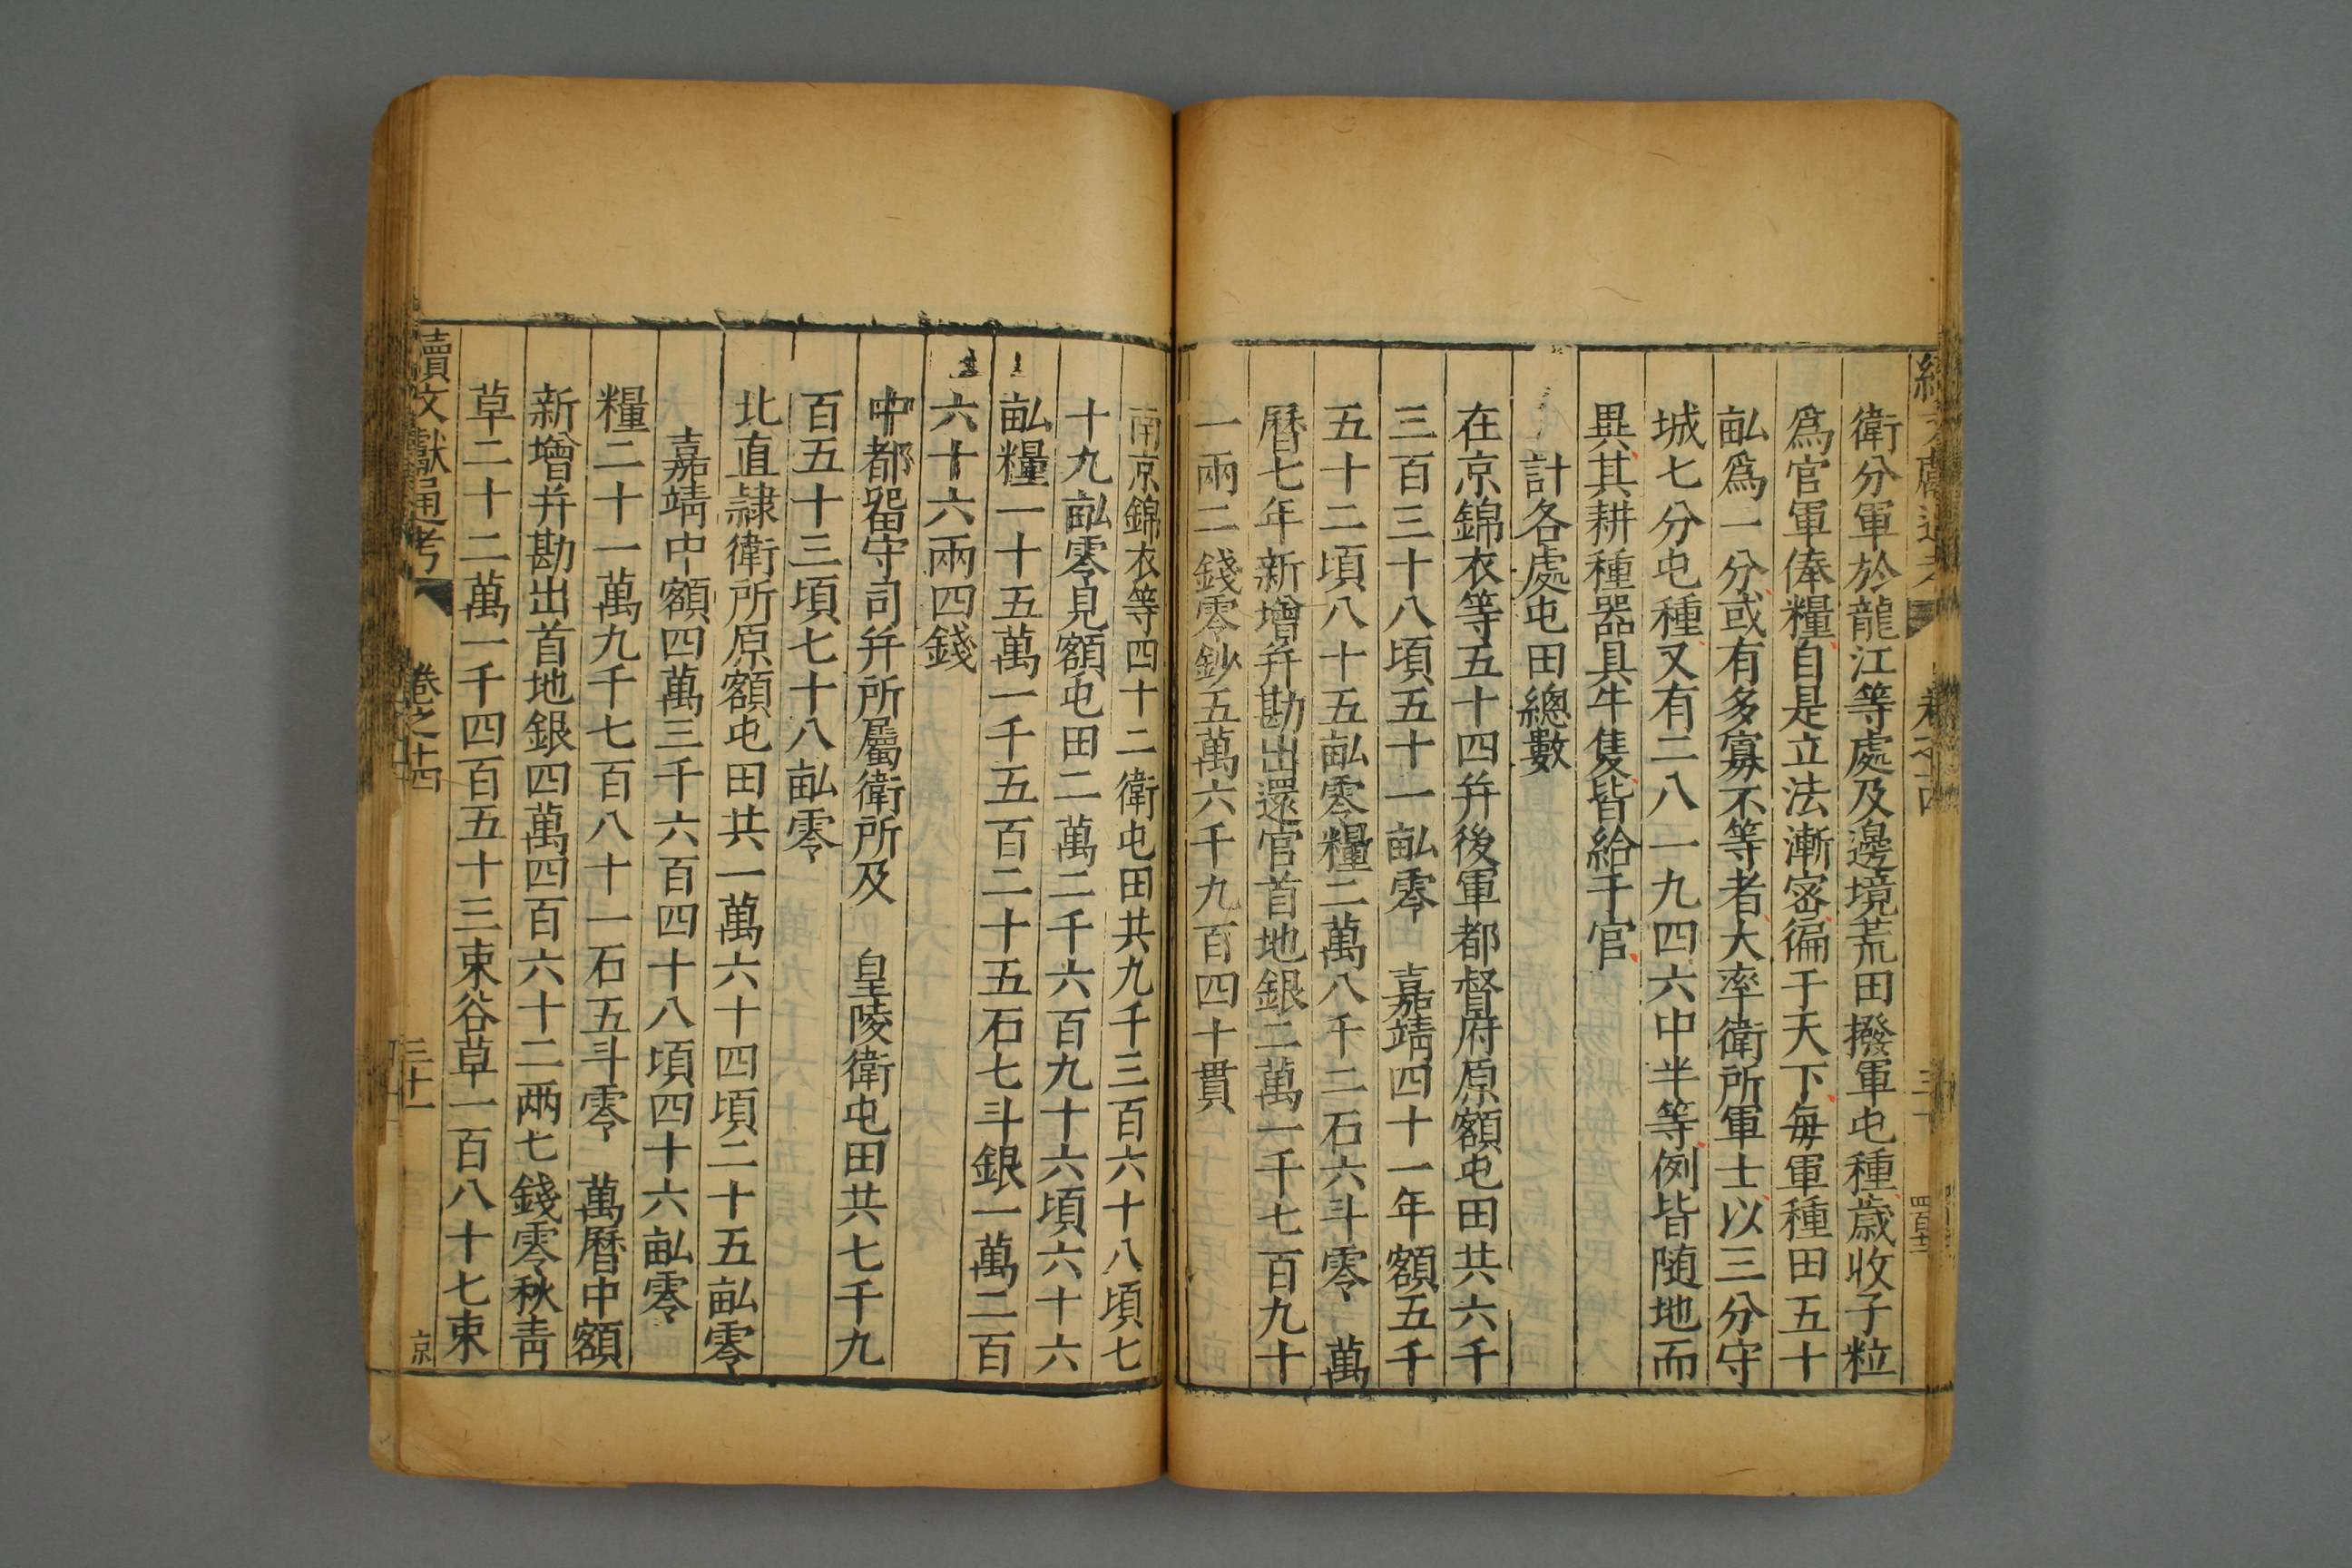 衛分軍於龍江等處及邊境荒田撥軍屯種歲收子粒
爲官軍俸糧自是立法漸宻徧于天下每軍種田五十
畆爲一分或有多寡不等者大率衛所軍士以三分守
城七分屯種又有二八一九四六中半等例皆随地而
異其耕種器具牛隻皆給于官
計各處屯田總數
在京錦衣等五十四并後軍都督府原額屯田共六千
三百三十八頃五十一畆零　嘉靖四十一年額五千
五十二頃八十五畆零糧二萬八千二石六斗零　萬
曆七年新增并勘出還官首地銀二萬一千七百九十
一兩二錢零鈔五萬六千九百四十貫
南京錦衣等四十二衛屯田共九千三百六十八頃七
十九畆零見額屯田二萬二千六百九十六頃六十六
畆糧一十五萬一千五百二十五石七斗銀一萬二百
六十六兩四錢
中都畱守司并所屬衛所及　皇陵衛屯田共七千九
百五十三頃七十八畆零
北直隷衛所原額屯田共一萬六十四頃二十五畆零
嘉靖中額四萬三千六百四十八頃四十六畆零
糧二十一萬九千七百八十一石五斗零　萬曆中額
新增并勘出首地銀四萬四百六十二兩七錢零秋青
草二十二萬一千四百五十三束谷草一百八十七束
續文獻通考　卷之十四　三十一　京